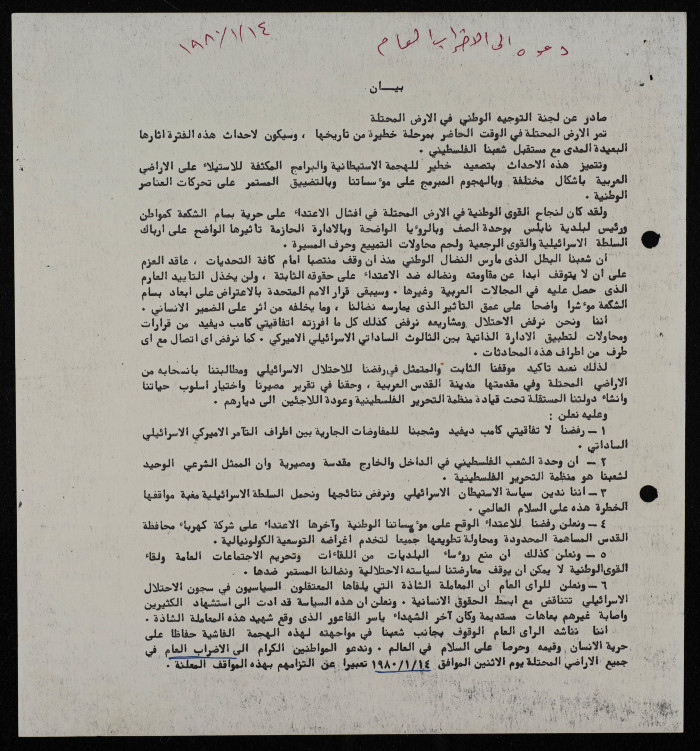 دعوه الى الاضراب العام
١٩٨٠/١/١٤
بيــان
صادر عن لجنة التوجيه الوطني في الارض المحتلة
تمر الارض المحتلة في الوقت الحاضر بمرحلة خطيرة من تاريخها ، وسيكون لاحداث هذه الفترة اثارها
البعيدة المدى مع مستقبل شعبنا الفلسطيني .
وتتميز هذه الاحداث بتصعيد خطير للهجمة الاستيطانية والبرامج المكثفة للاستيلاء على الاراضي
العربية باشكال مختلفة وبالهجوم المبرمج على مؤسساتنا وبالتضييق المستمر على تحركات العناصر
الوطنية .
ولقد كان لنجاح القوى الوطنية في الارض المحتلة في افشال الاعتداء على حرية بسام الشكعة كمواطن
ورئيس لبلدية نابلس بوحدة الصف وبالرؤيا الواضحة وبالادارة الحازمة تأثيرها الواضح على ارباك
السلطة الاسرائيلية والقوى الرجعية ولجم محاولات التمييع وحرف المسيرة .
ان شعبنا البطل الذى مارس النضال الوطني منذ ان وقف منتصبا امام كافة التحديات ، عاقد العزم
على ان لا يتوقف ابدا عن مقاومته ونضاله ضد الاعتداء على حقوقه الثابتة ، ولن يخذل التأييد العارم
الذى حصل عليه في المجالات العربية وغيرها . وسيبقى قرار الامم المتحدة بالاعتراض على ابعاد بسام
الشكعة مؤشرا واضحا على عمق التأثير الذى يمارسه نضالنا ، وما يخلفه من اثر على الضمير الانساني .
اننا ونحن نرفض الاحتلال ومشاريعه نرفض كذلك كل ما افرزته اتفاقيتي كامب ديفيد من قرارات
ومحاولات لتطبيق الادارة الذاتية بين الثالوث الساداتي الاسرائيلي الاميركي . كما نرفض اى اتصال مع اى
طرف من اطراف هذه المحادثات .
لذلك نعيد تأكيد موقفنا الثابت والمتمثل في رفضنا للاحتلال الاسرائيلي ومطالبتنا بانسحابه من
الاراضي المحتلة وفي مقدمتها مدينة القدس العربية ، وحقنا في تقرير مصيرنا واختيار اسلوب حياتنا
وانشاء دولتنا المستقلة تحت قيادة منظمة التحرير الفلسطينية وعودة اللاجئين الى ديارهم .
وعليه نعلن :
١ ــ رفضنا لا تفاقيتي كامب ديفيد وشجبنا للمفاوضات الجارية بين اطراف التآمر الاميركي الاسرائيلي
الساداتي .
٢ ــ ان وحدة الشعب الفلسطيني في الداخل والخارج مقدسة ومصيرية وان الممثل الشرعي الوحيد
لشعبنا هو منظمة التحرير الفلسطينية .
٣ ــ اننا ندين سياسة الاستيطان الاسرائيلي ونرفض نتائجها ونحمل السلطة الاسرائيلية مغبة مواقفها
الخطرة هذه على السلام العالمي .
٤ ــ ونعلن رفضنا للاعتداء الوقع على مؤسساتنا الوطنية وآخرها الاعتداء على شركة كهرباء محافظة
القدس المساهمة المحدودة ومحاولة تطويعها جميعا لتخدم اغراضه التوسعية الكولونيالية .
٥ ــ ونعلن كذلك ان منع رؤساء البلديات من اللقاءات وتحريم الاجتماعات العامة ولقاء
القوى الوطنية لا يمكن ان يوقف معارضتنا لسياسته الاحتلالية ونضالنا المستمر ضدها .
٦ ــ ونعلن للراى العام ان المعاملة الشاذة التي يلقاها المعتقلون السياسيون في سجون الاحتلال
الاسرائيلي تتناقض مع ابسط الحقوق الانسانية . ونعلن ان هذه السياسة قد ادت الى استشهاد الكثيرين
واصابة غيرهم بعاهات مستديمة وكان آخر الشهداء ياسر الفاعور الذى وقع شهيد هذه المعاملة الشاذة .
اننا نناشد الراى العام الوقوف بجانب شعبنا في مواجهته لهذه الهجمة الفاشية حفاظا على
حرية الانسان وقيمه وحرصا على السلام في العالم . وندعو المواطنين الكرام الى الاضراب العام في
جميع الاراضي المحتلة يوم الاثنين الموافق ١٩٨٠/١/١٤ تعبيرا عن التزامهم بهذه المواقف المعلنة .